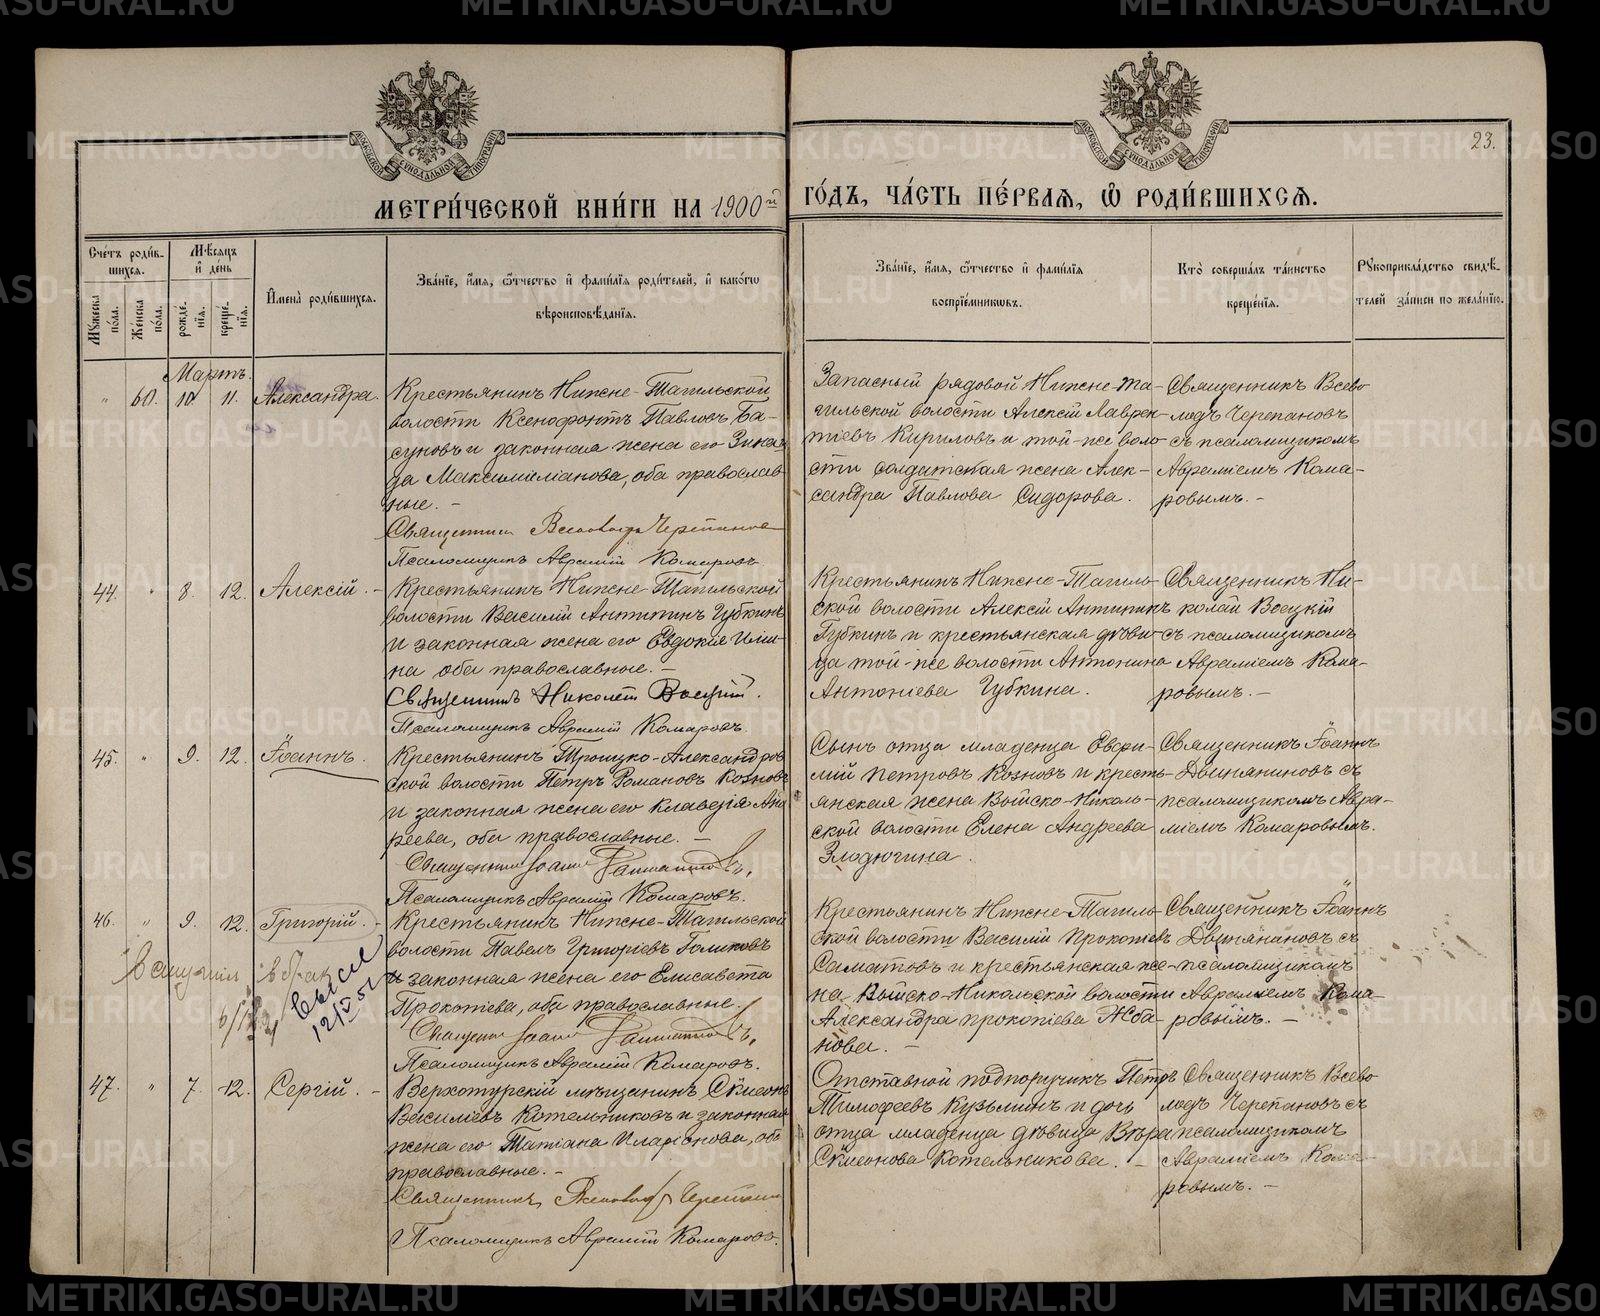 23.
МОСКОВСКОЙ СѴНОДАЛЬНОЙ ТИПОГРАФІИ
МОСКОВСКОЙ СѴНОДАЛЬНОЙ ТИПОГРАФІИ
МЕТРИ́ЧЕСКОЙ КНИ́ГИ НА 1900й ГО́ДЪ, ЧА́СТЬ ПЕ́РВАѦ, Ѡ҆ РОДИ́ВШИХСѦ.
Сче́тъ роди́в-
шихсѧ.
Мꙋжеска по́ла.
Же́нска по́ла.
Мѣ́сѧцъ
и҆ де́нь
рожде́-
нїѧ.
креще́-
нїѧ.
И҆мена̀ роди́вшихсѧ.
Зва́нїе, и҆́мѧ, ѻ҆́тчество и҆ фами́лїѧ роди́телей, и҆ како́гѡ
вѣроисповѣ́данїѧ.
Зва́нїе, и҆́мѧ, ѻ҆́тчество и҆ фами́лїѧ
воспрїе́мникѡвъ.
Кто̀ соверша́лъ та́инство
креще́нїѧ.
Рꙋкоприкла́дство свидѣ́-
телей за́писи по жела́нїю.
Мартъ.
" 60. 10. 11. Александра.
Крестьянинъ Нижне-Тагильской
волости Ксенофонтъ Павловъ Ба-
суновъ и законная жена его Зинаи-
да Максимиліанова, оба православ-
ные. –
Священникъ Всеволодъ Черепановъ
Псаломщикъ Аврамій Комаровъ.
Запасный рядовой Нижне-Та-
гильской волости Алексій Лаврен-
тіевъ Кириловъ и той-же воло-
сти солдатская жена Алек-
сандра Павлова Сидорова.
Священникъ Всево-
лодъ Черепановъ
съ псаломщикомъ
Авраміемъ Кома-
ровымъ. –
44. " 8. 12. Алексій. –
Крестьянинъ Нижне-Тагильской
волости Василій Антипинъ Губкинъ
и законная жена его Евдокия Или-
на оба православные. –
Священникъ Николай Воецкій.
Псаломщикъ Аврамій Комаровъ.
Крестьянинъ Нижне-Тагиль-
ской волости Алексій Антипинъ
Губкинъ и крестьянская дѣви-
ца той-же волости Антонина
Антоніева Губкина.
Священникъ Ни-
колай Воецкій
съ псаломщикомъ
Авраміемъ Кома-
ровымъ. –
45. " 9. 12. Іоаннъ.
Крестьянинъ Троицко-Александров
ской волости Петръ Романовъ Козновъ
и законная жена его Клавдія Анд
реева, оба православные. –
Священникъ Іоаннъ
Псаломщикъ Аврамій Комаровъ.
Сынъ отца младенца Евфи-
мій Петровъ Козновъ и кресть-
янская жена Выйско-Николь-
ской волости Елена Андреева
Злодюгина.
Священникъ Іоаннъ
Двиняниновъ съ
псаломщикомъ Авра-
міемъ Комаровымъ.
46. " 9. 12. Григорій. –
вступил в брак
12/V 51
Крестьянинъ Нижне-Тагильской
волости Павелъ Григоріевъ Голиковъ
и законная жена его Елисавета
Прокопіева, оба православные.
Священникъ Іоаннъ
Псаломщикъ Аврамій Комаровъ.
Крестьянинъ Нижне-Тагиль-
ской волости Василій Прокопіевъ
Саматовъ и крестьянская же-
на Выйско-Никольской волости
Александра Прокопіева Жба-
нова. –
Священникъ Іоаннъ
Двиняниновъ съ
псаломщикомъ
Авраміемъ Кома-
ровымъ. –
47. " 7. 12. Сергій. –
Верхотурскій мѣщанинъ Симеонъ
Василіевъ Котельниковъ и законная
жена его Татіана Иларіонова, оба
православные. –
Священникъ Всеволодъ Черепановъ
Псаломщикъ Аврамій Комаровъ.
Отставной подпоручикъ Петръ
Тимофеевъ Кузьминъ и дочь
отца младенца дѣвица Вѣра
Симеонова Котельникова. –
Священникъ Всево
лодъ Черепановъ съ
псаломщикомъ
Авраміемъ Кома-
ровымъ. –
METRIKI.GASO-URAL.RU